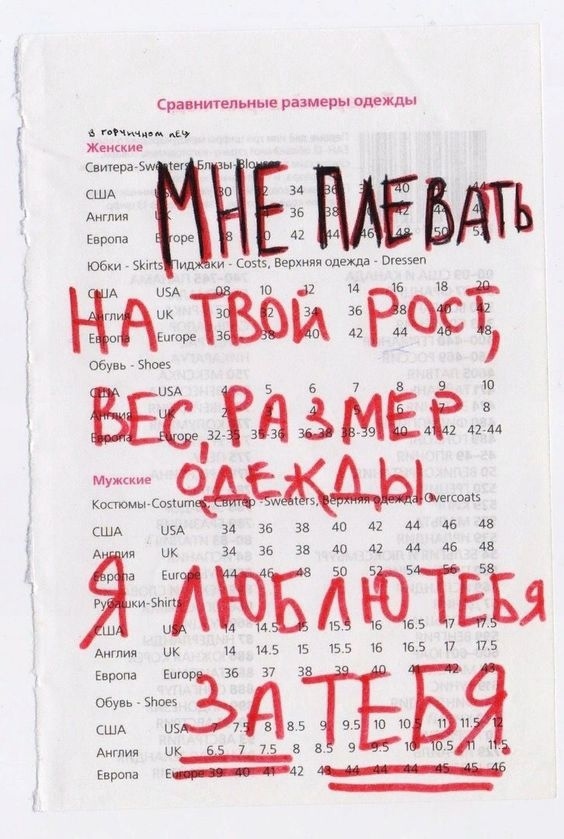 Сравнительные размеры одежды
в горчичном лесу
Женские
Свитера-Sweaters, Блузы-Blouses
МНЕ ПЛЕВАТЬ
США 30 32 34 40 44
Англия UK 36 38 42 44
Европа Europe 42 44 46 48 50 52
Юбки - Skirts, Пиджаки - Costs, Верхняя одежда - Dressen
США USA 08 10 12 14 16 18 20
НА ТВОЙ РОСТ,
Англия UK 30 32 34 36 38 40 42
Европа Europe 36 38 40 42 44 46 48
Обувь - Shoes
США USA 4 5 6 7 8 9 10
ВЕС, РАЗМЕР
Англия UK 2 3 4 5 6 7 8
Европа Europe 32-35 35-36 36-38 38-39 40 41-42 42-44
ОДЕЖДЫ
Мужские
Костюмы-Costumes, Свитер -Sweaters, Верхняя одежда-Overcoats
США USA 34 36 38 40 42 44 46 48
Англия UK 34 36 38 40 42 44 46 48
Европа Europe 44 46 48 50 52 54 56 58
Я ЛЮБЛЮ ТЕБЯ
Рубашки-Shirts
США USA 14 14.5 15 15.5 16 16.5 17 17.5
Англия UK 14 14.5 15 15.5 16 16.5 17 17.5
Европа Europe 36 37 38 39 40 41 42 43
Обувь - Shoes
ЗА ТЕБЯ
США USA 7 7.5 8 8.5 9 9.5 10 10.5 11 11.5 12
Англия UK 6.5 7 7.5 8 8.5 9 9.5 10 10.5 11 11.5
Европа Europe 39 40 41 42 43 44 44 44 45 45 46